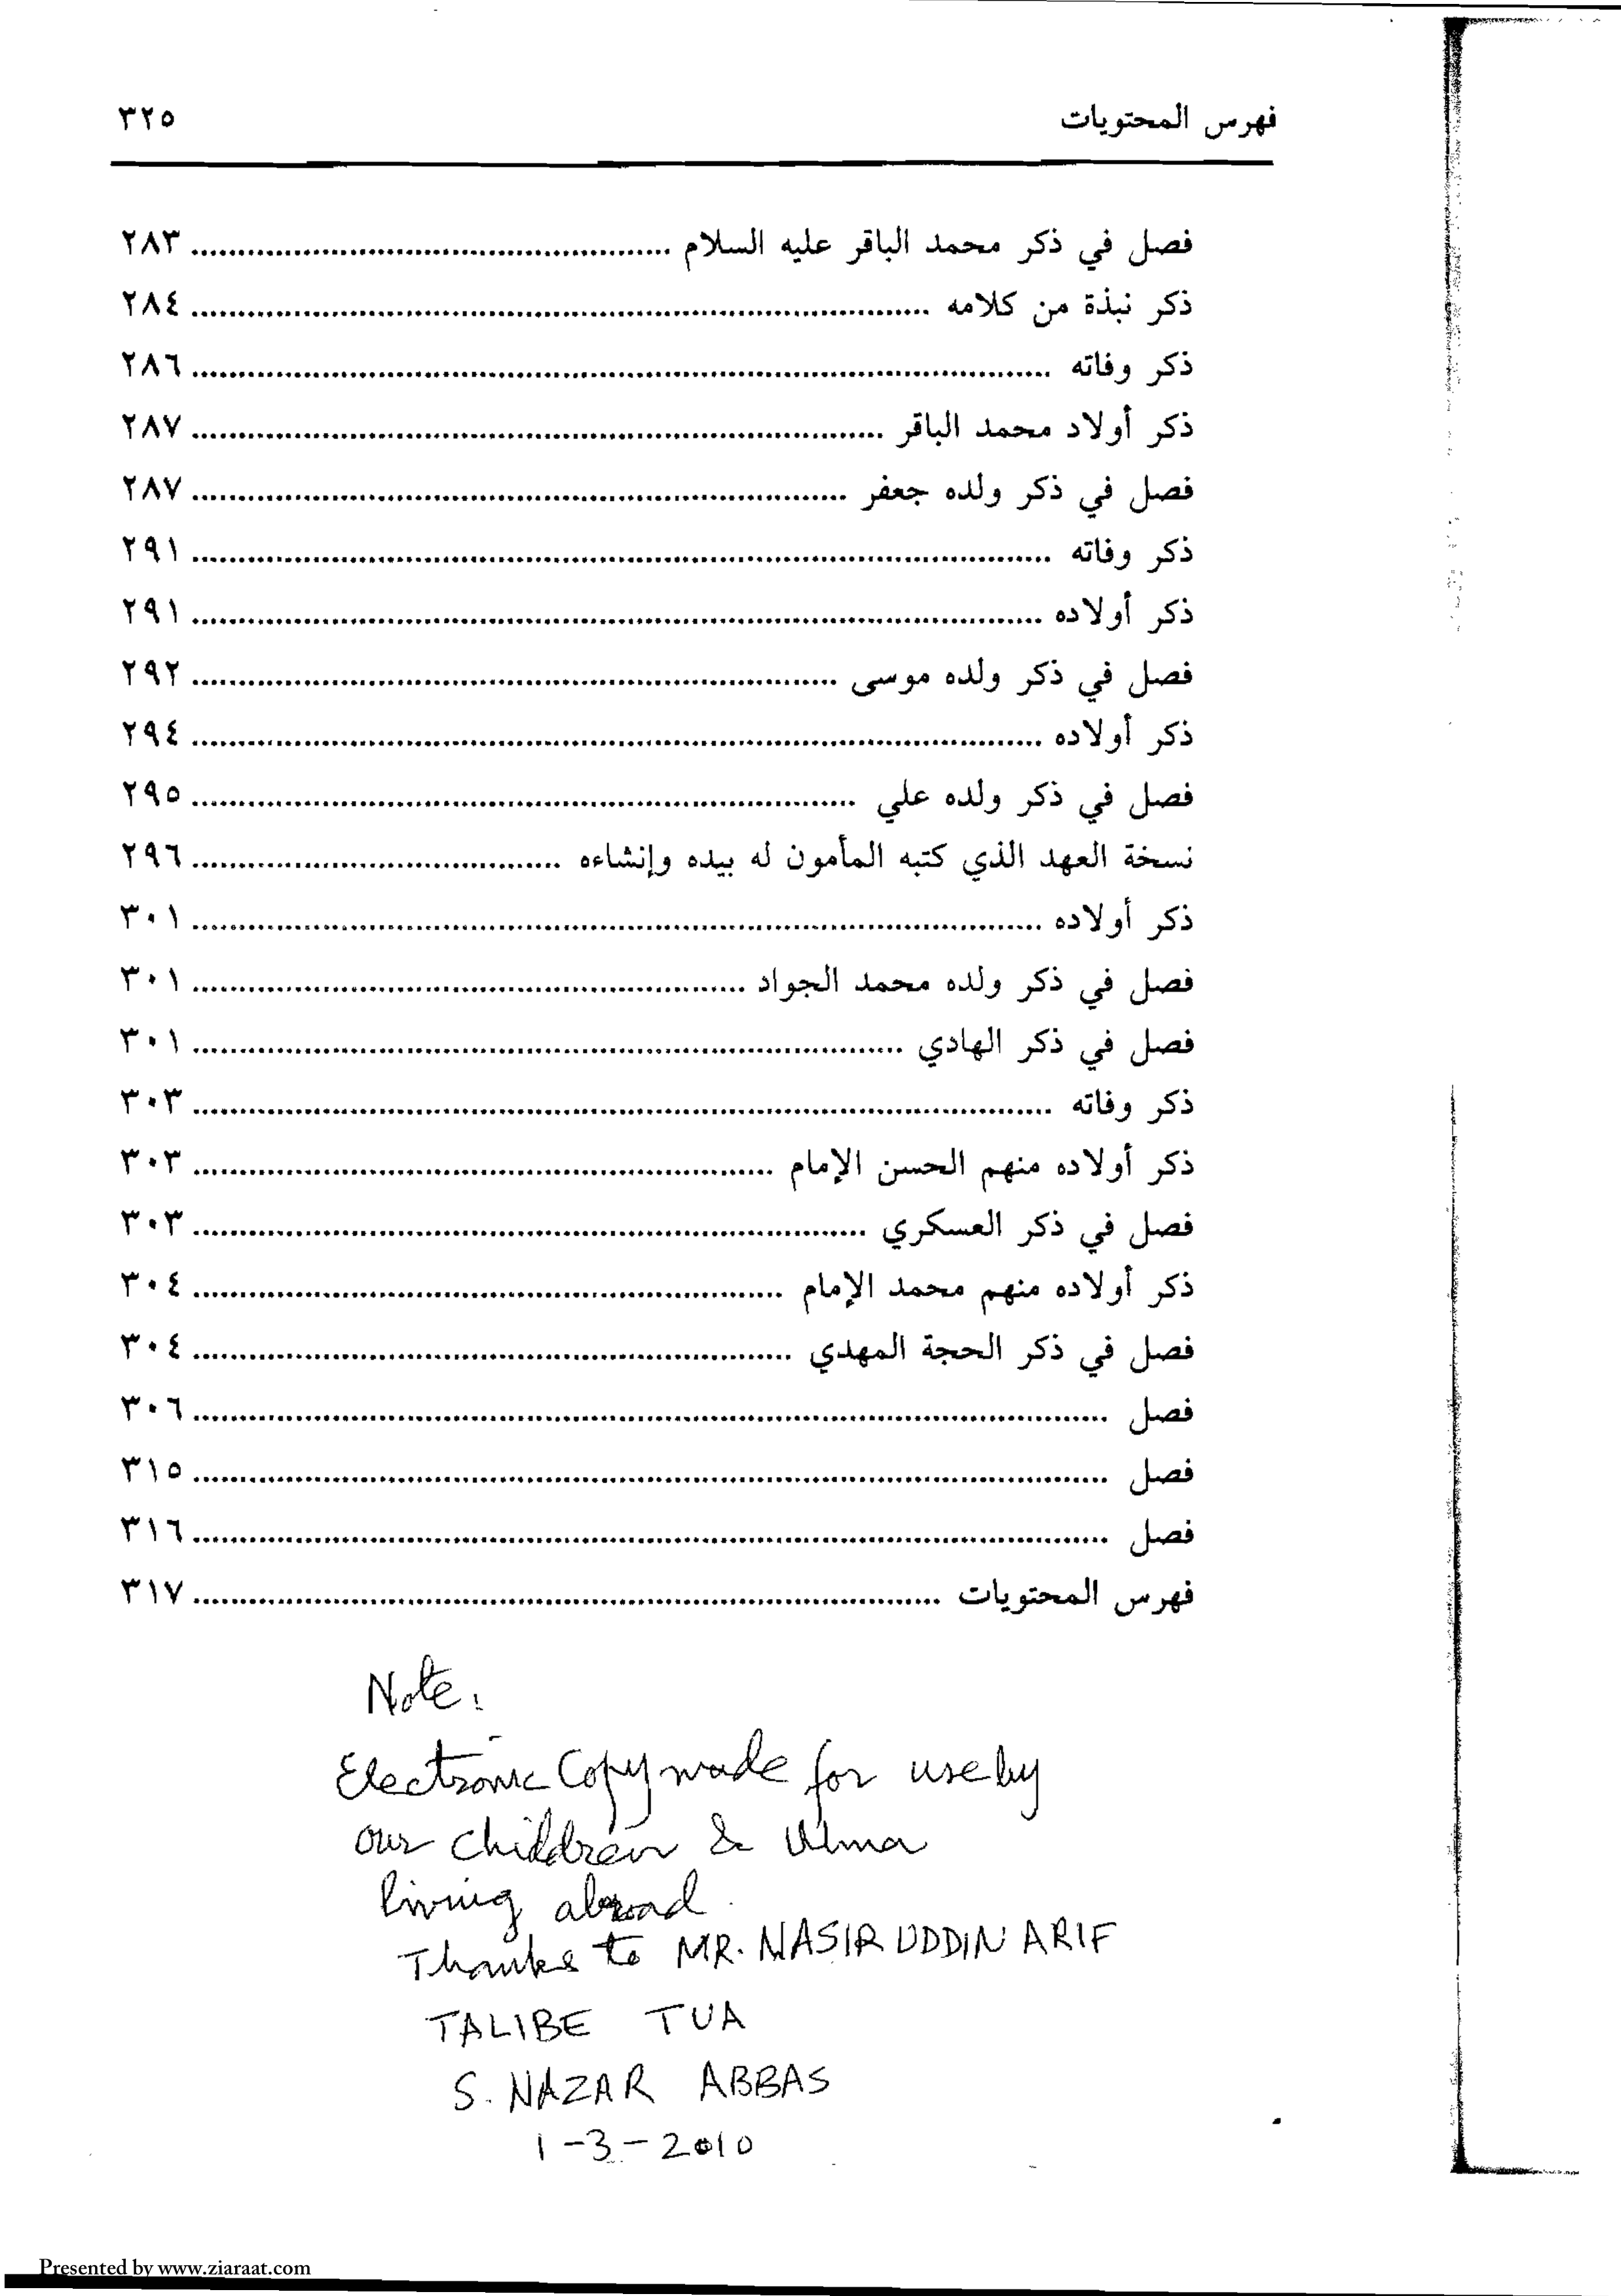 فهرس المحتويات ٣٢٥
فصل في ذكر محمد الباقر عليه السلام ٢٨٣
ذكر نبذة من كلامه ٢٨٤
ذكر وفاته ٢٨٦
ذكر أولاد محمد الباقر ٢٨٧
فصل في ذكر ولده جعفر ٢٨٧
ذكر وفاته ٢٩١
ذكر أولاده ٢٩١
فصل في ذكر ولده موسى ٢٩٢
ذكر أولاده ٢٩٤
فصل في ذكر ولده علي ٢٩٥
نسخة العهد الذي كتبه المأمون له بيده وإنشاءه ٢٩٦
ذكر أولاده ٣٠١
فصل في ذكر ولده محمد الجواد ٣٠١
فصل في ذكر الهادي ٣٠١
ذكر وفاته ٣٠٣
ذكر أولاده منهم الحسن الإمام ٣٠٣
فصل في ذكر العسكري ٣٠٣
ذكر أولاده منهم محمد الإمام ٣٠٤
فصل في ذكر الحجة المهدي ٣٠٤
فصل ٣٠٦
فصل ٣١٥
فصل ٣١٦
فهرس المحتويات ٣١٧
Note:
Electronic Copy made for use by
our children & Ulma
living abroad.
Thanks to MR. NASIR UDDIN ARIF
TALIBE TUA
S. NAZAR ABBAS
1-3-2010
Presented by www.ziaraat.com